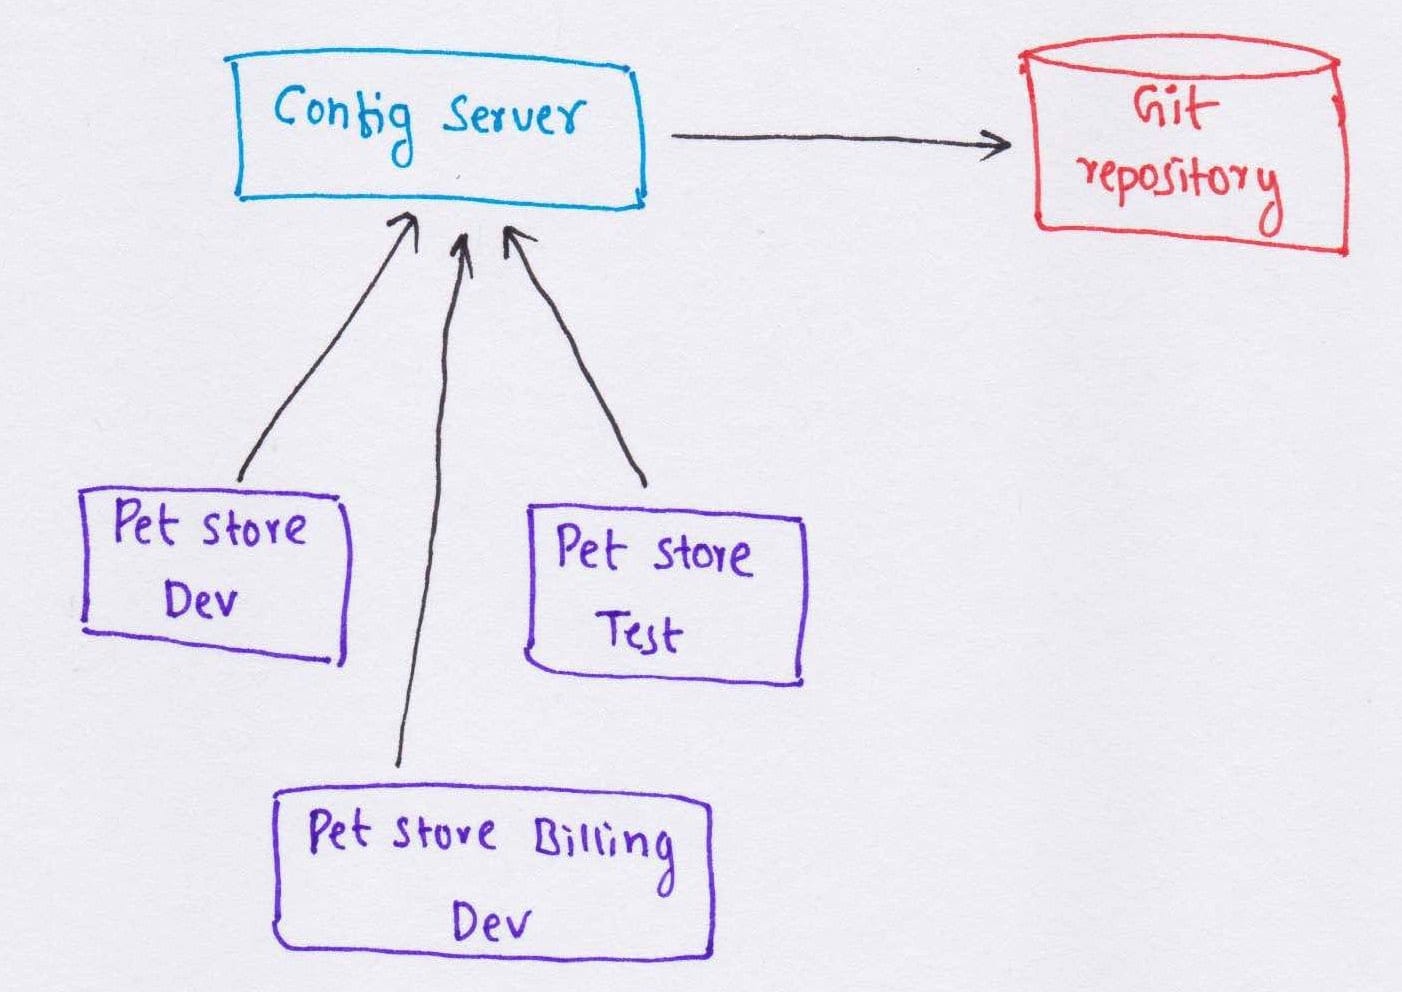 Config Server
Git
repository
Pet store
Dev
Pet store
Test
Pet store Billing
Dev